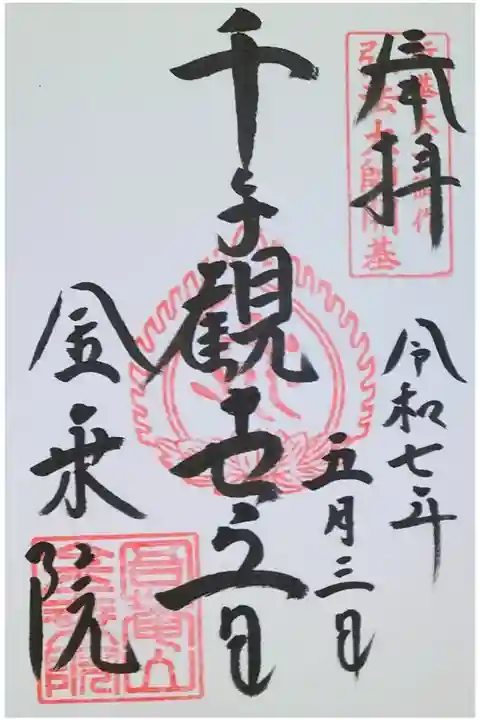 奉拝
行基大師御作
弘法大師開基
令和七年
五月三日
千手観世音
金乗院